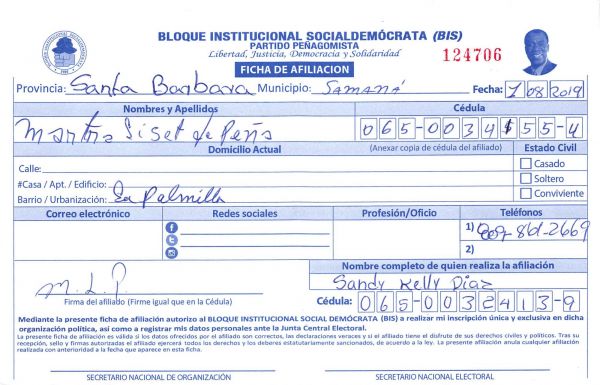 BLOQUE INSTITUCIONAL SOCIALDEMÓCRATA (BIS)
PARTIDO PEÑAGOMISTA
Libertad, Justicia, Democracia y Solidaridad
124706
FICHA DE AFILIACION
Provincia: Santa Barbara Municipio: SAMANÁ Fecha: 1/08/2019
Nombres y Apellidos Cédula
Martha Liset de Peña 065-0034
Domicilio Actual (Anexar copia de cédula del afiliado) Estado Civil
Calle: Casado
#Casa / Apt. / Edificio: Soltero
Barrio / Urbanización: La Palmilla Conviviente
Correo electrónico Redes sociales Profesión/Oficio Teléfonos
1) 809-861-2669
2)
Nombre completo de quien realiza la afiliación
M. L. P. Sandy Kelly Diaz
Firma del afiliado (Firme igual que en la Cédula) Cédula: 065-0032413-9
Mediante la presente ficha de afiliación autorizo al BLOQUE INSTITUCIONAL SOCIAL DEMÓCRATA (BIS) a realizar mi inscripción única y exclusiva en dicha
organización política, así como a registrar mis datos personales ante la Junta Central Electoral.
La presente ficha de afiliación es válida si los datos ofrecidos por el afiliado son correctos, las declaraciones veraces y si el afiliado tiene el disfrute de sus derechos civiles y políticos. Tras su
recepción, sello y firmas autorizadas el afiliado ejercerá todos los derechos y los deberes estatutariamente sancionados, de acuerdo a la ley. La presente afiliación anula cualquier afiliación
realizada con anterioridad a la fecha que aparece en esta ficha.
SECRETARIO NACIONAL DE ORGANIZACIÓN SECRETARIO NACIONAL ELECTORAL